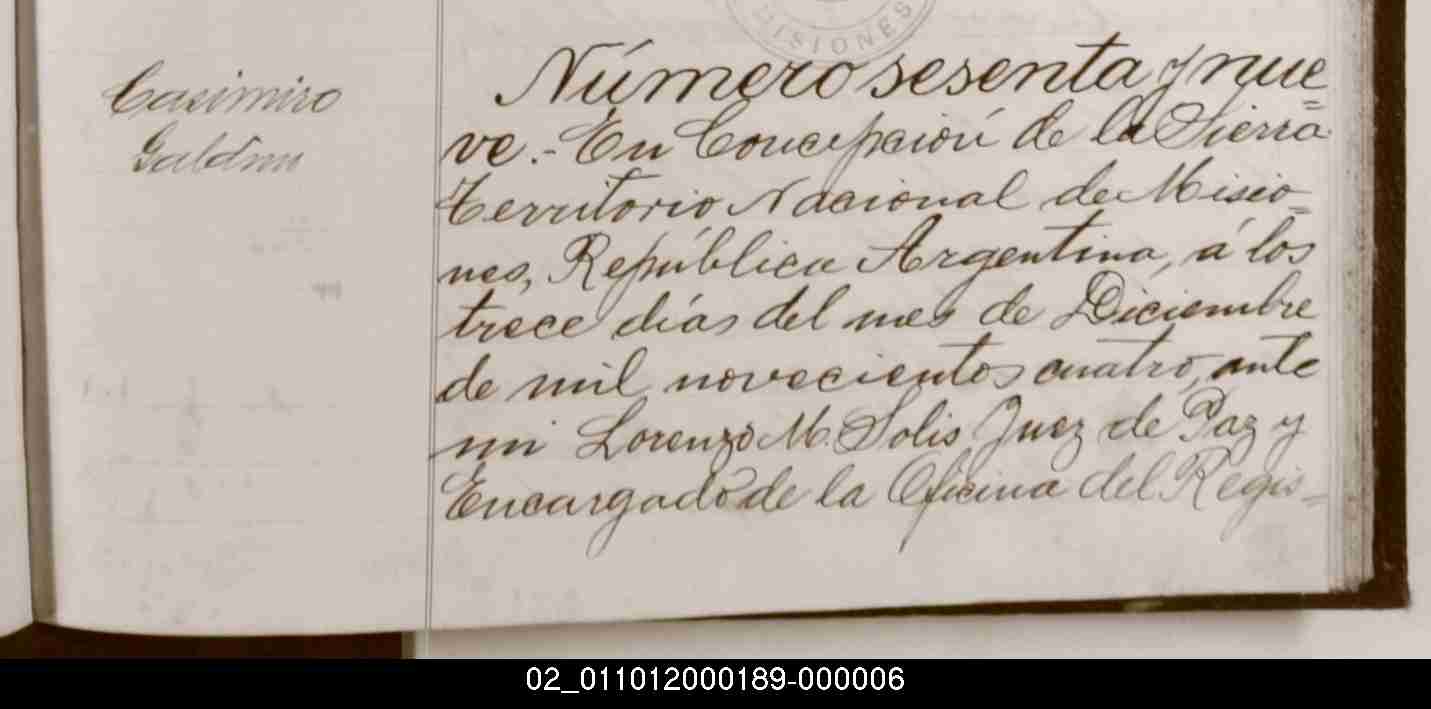 MISIONES
Casimiro
Número sesenta y nue=
ve.- En Concepción de la Sierra
Territorio Nacional de Misio=
nes, República Argentina, á los
trece días del mes de Diciembre
de mil novecientos cuatro, ante
mi Lorenzo M. Solis Juez de Paz y
Encargado de la Oficina del Regis=
02_011012000189-000006